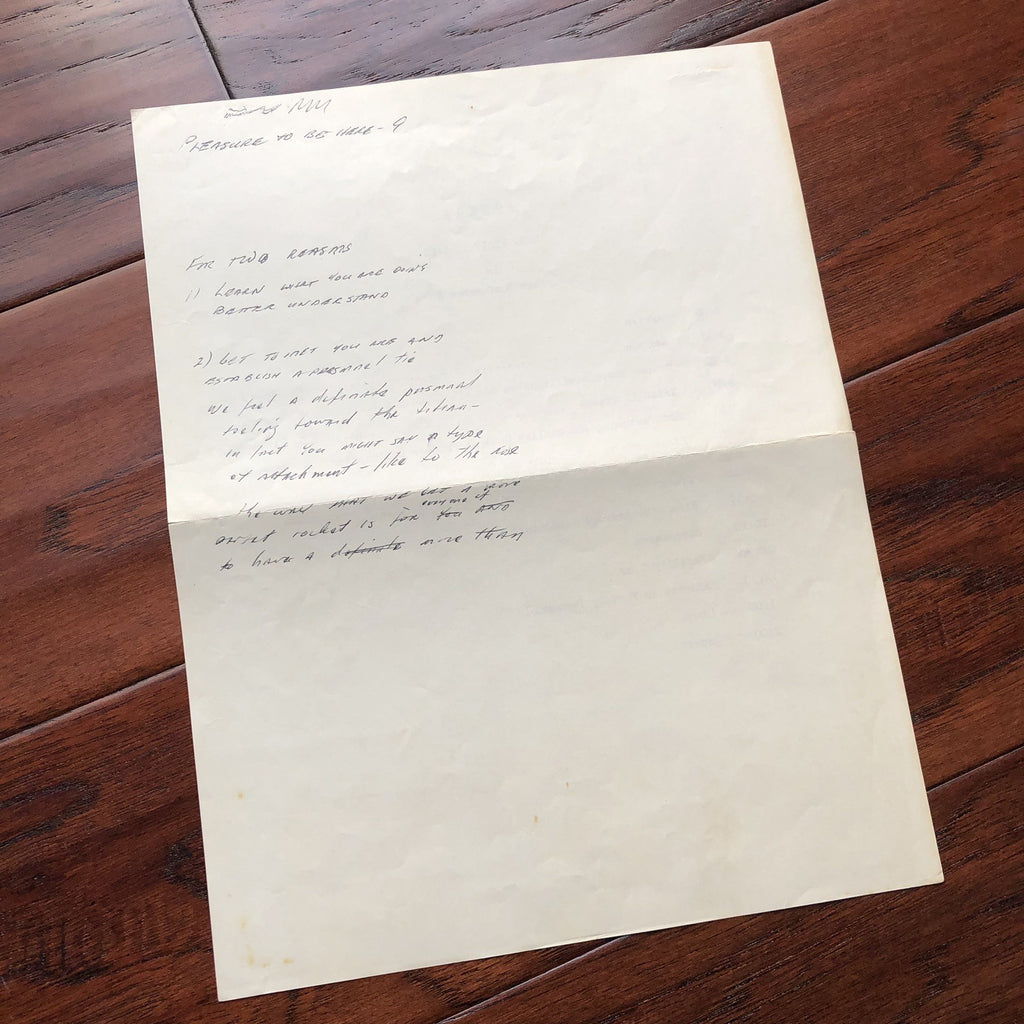 PLEASURE TO BE HERE - 9
FOR TWO REASONS
1) LEARN WHAT YOU ARE DOING
BETTER UNDERSTAND
2) GET TO MET YOU ARE AND
ESTABLISH A PERSONAL TIE
We feel a definite personal
feeling toward the titan -
in fact YOU MIGHT SAY A type
of attachment - like to the nose
the way that WE GET A
rocket is for you AND
to have a definite more than